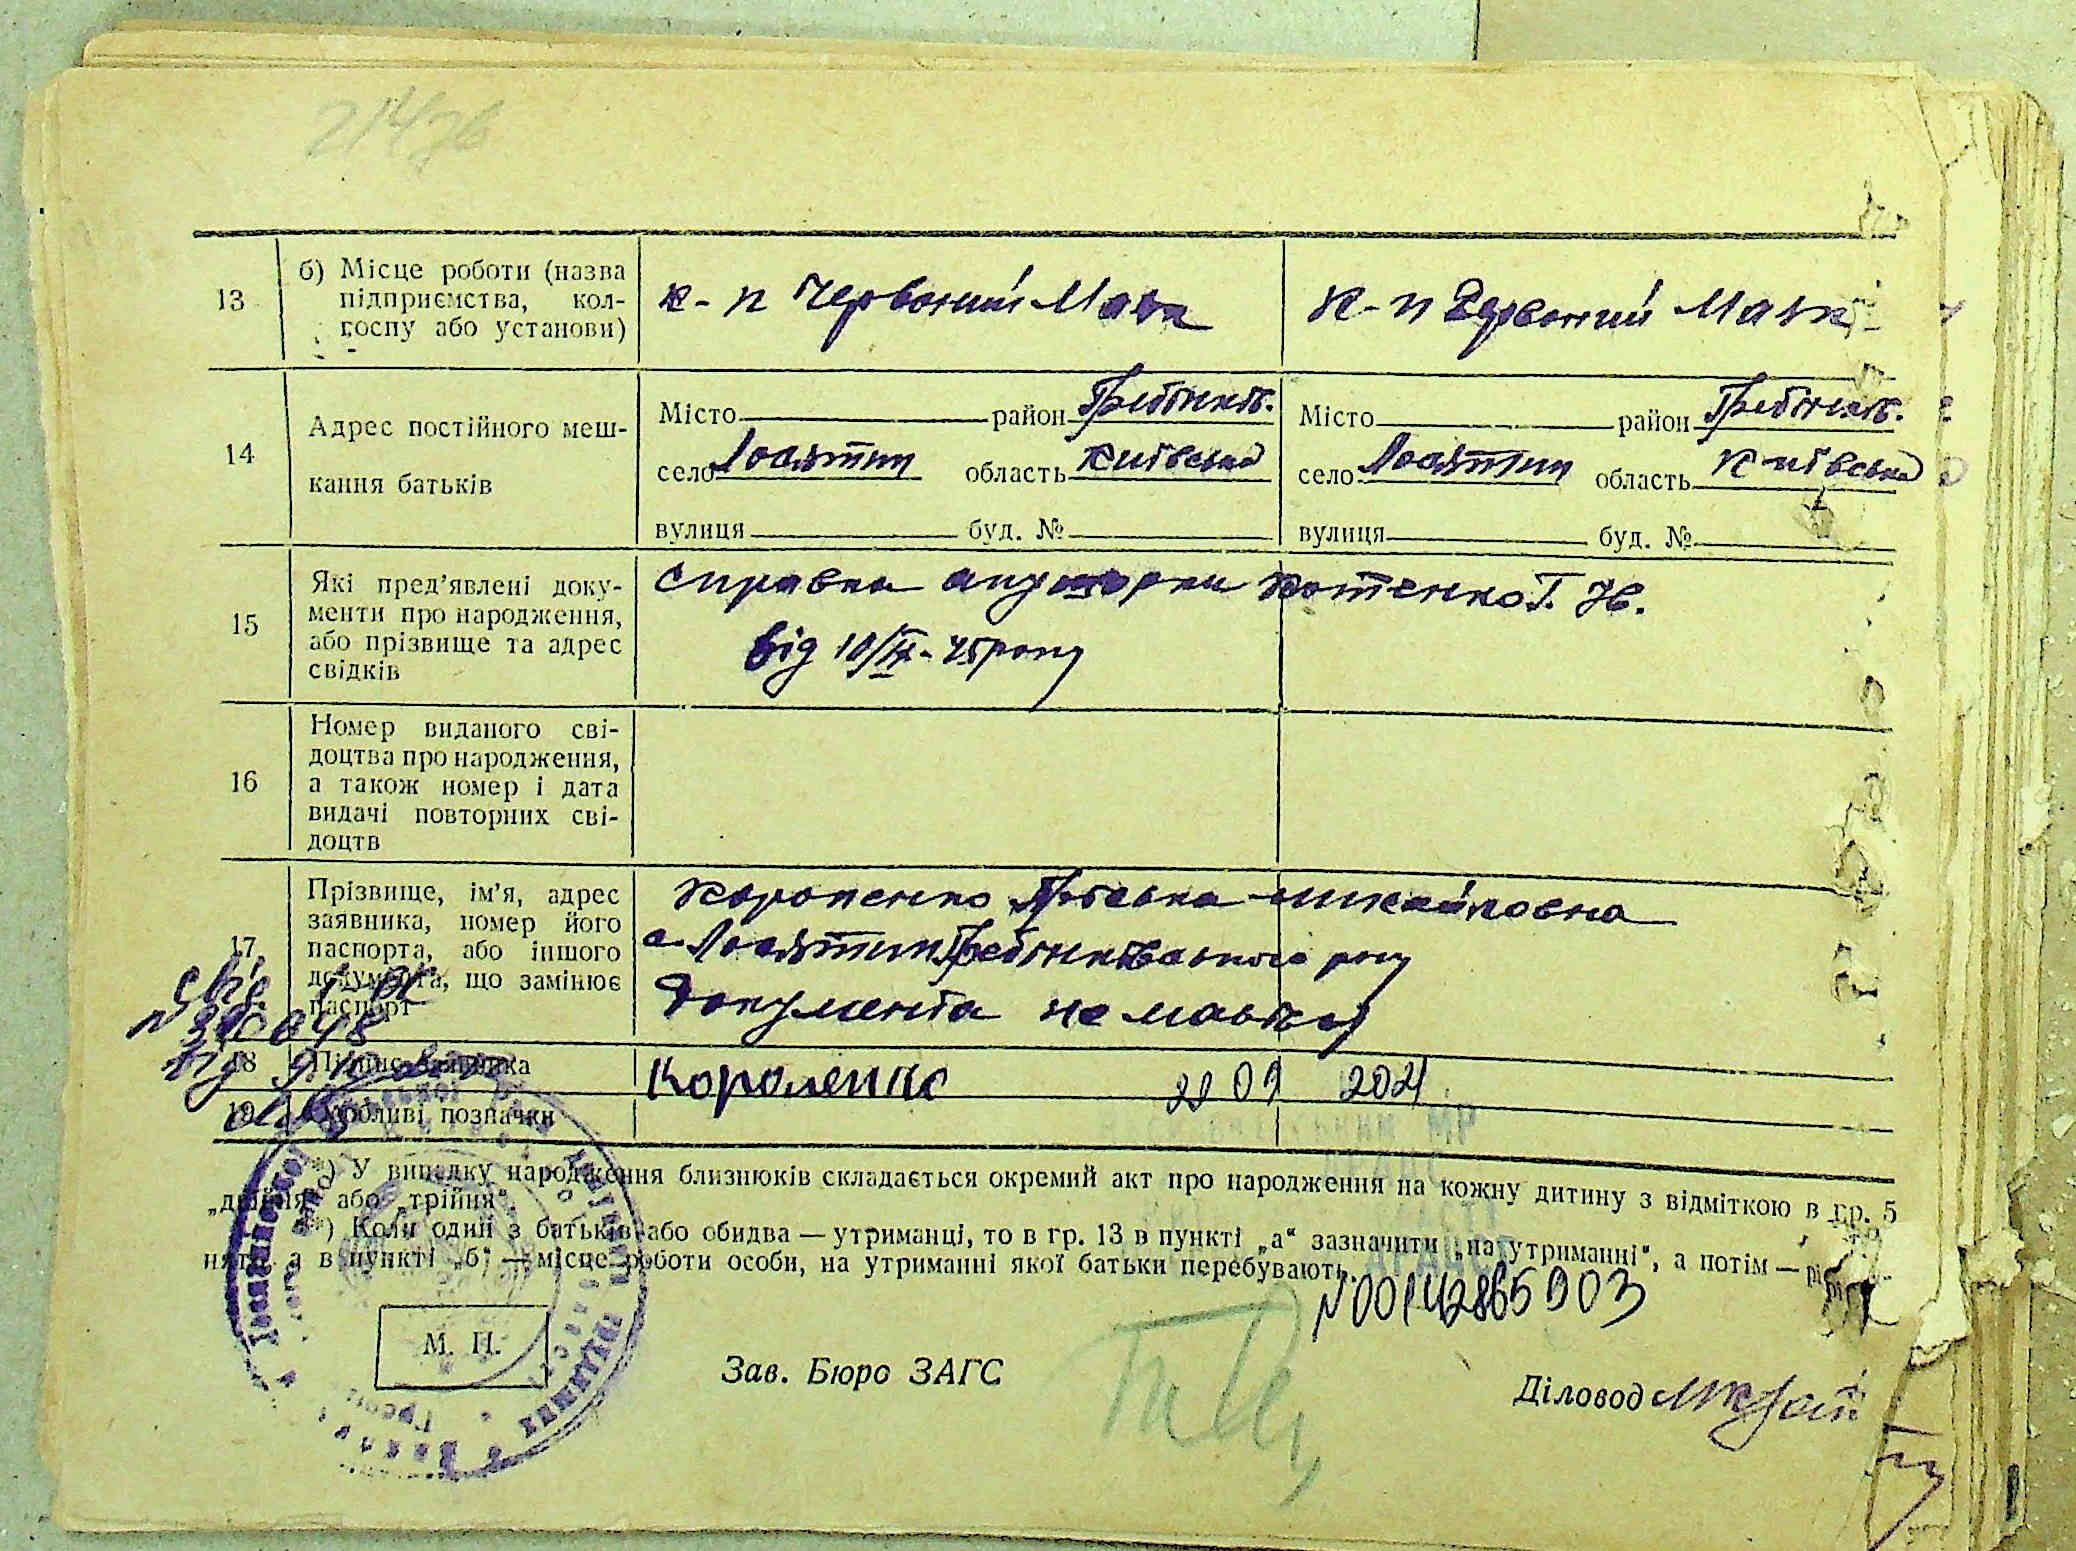 13 б) Місце роботи (назва
підприємства, кол-
госпу або установи)
к-п Червоний Маяк
к-п Червоний Маяк
14 Адрес постійного меш-
кання батьків
Місто район Гребінків.
село Лосятин область Київська
вулиця буд. №
Місто район Гребінків.
село Лосятин область Київська
вулиця буд. №
15 Які пред'явлені доку-
менти про народження,
або прізвище та адрес
свідків
справка акушорки Котенко Г. Н.
від 10/IX-45 року
16 Номер виданого сві-
доцтва про народження,
а також номер і дата
видачі повторних сві-
доцтв
17 Прізвище, ім'я, адрес
заявника, номер його
паспорта, або іншого
документа, що замінює
паспорт
Короленко Михайловна
с. Лосятин Гребінківського р-ну
Документа не мається
18 Підпис заявника
Короленко
09 2021
19 Особливі позначки
*) У випадку народження близнюків складається окремий акт про народження на кожну дитину з відміткою в гр. 5
„двійня" або „трійня".
**) Коли один з батьків або обидва — утриманці, то в гр. 13 в пункті „а" зазначити „на утриманні", а потім —
а в пункті „б" — місце роботи особи, на утриманні якої батьки перебувають.
№00142865903
М. П.
Зав. Бюро ЗАГС
Діловод